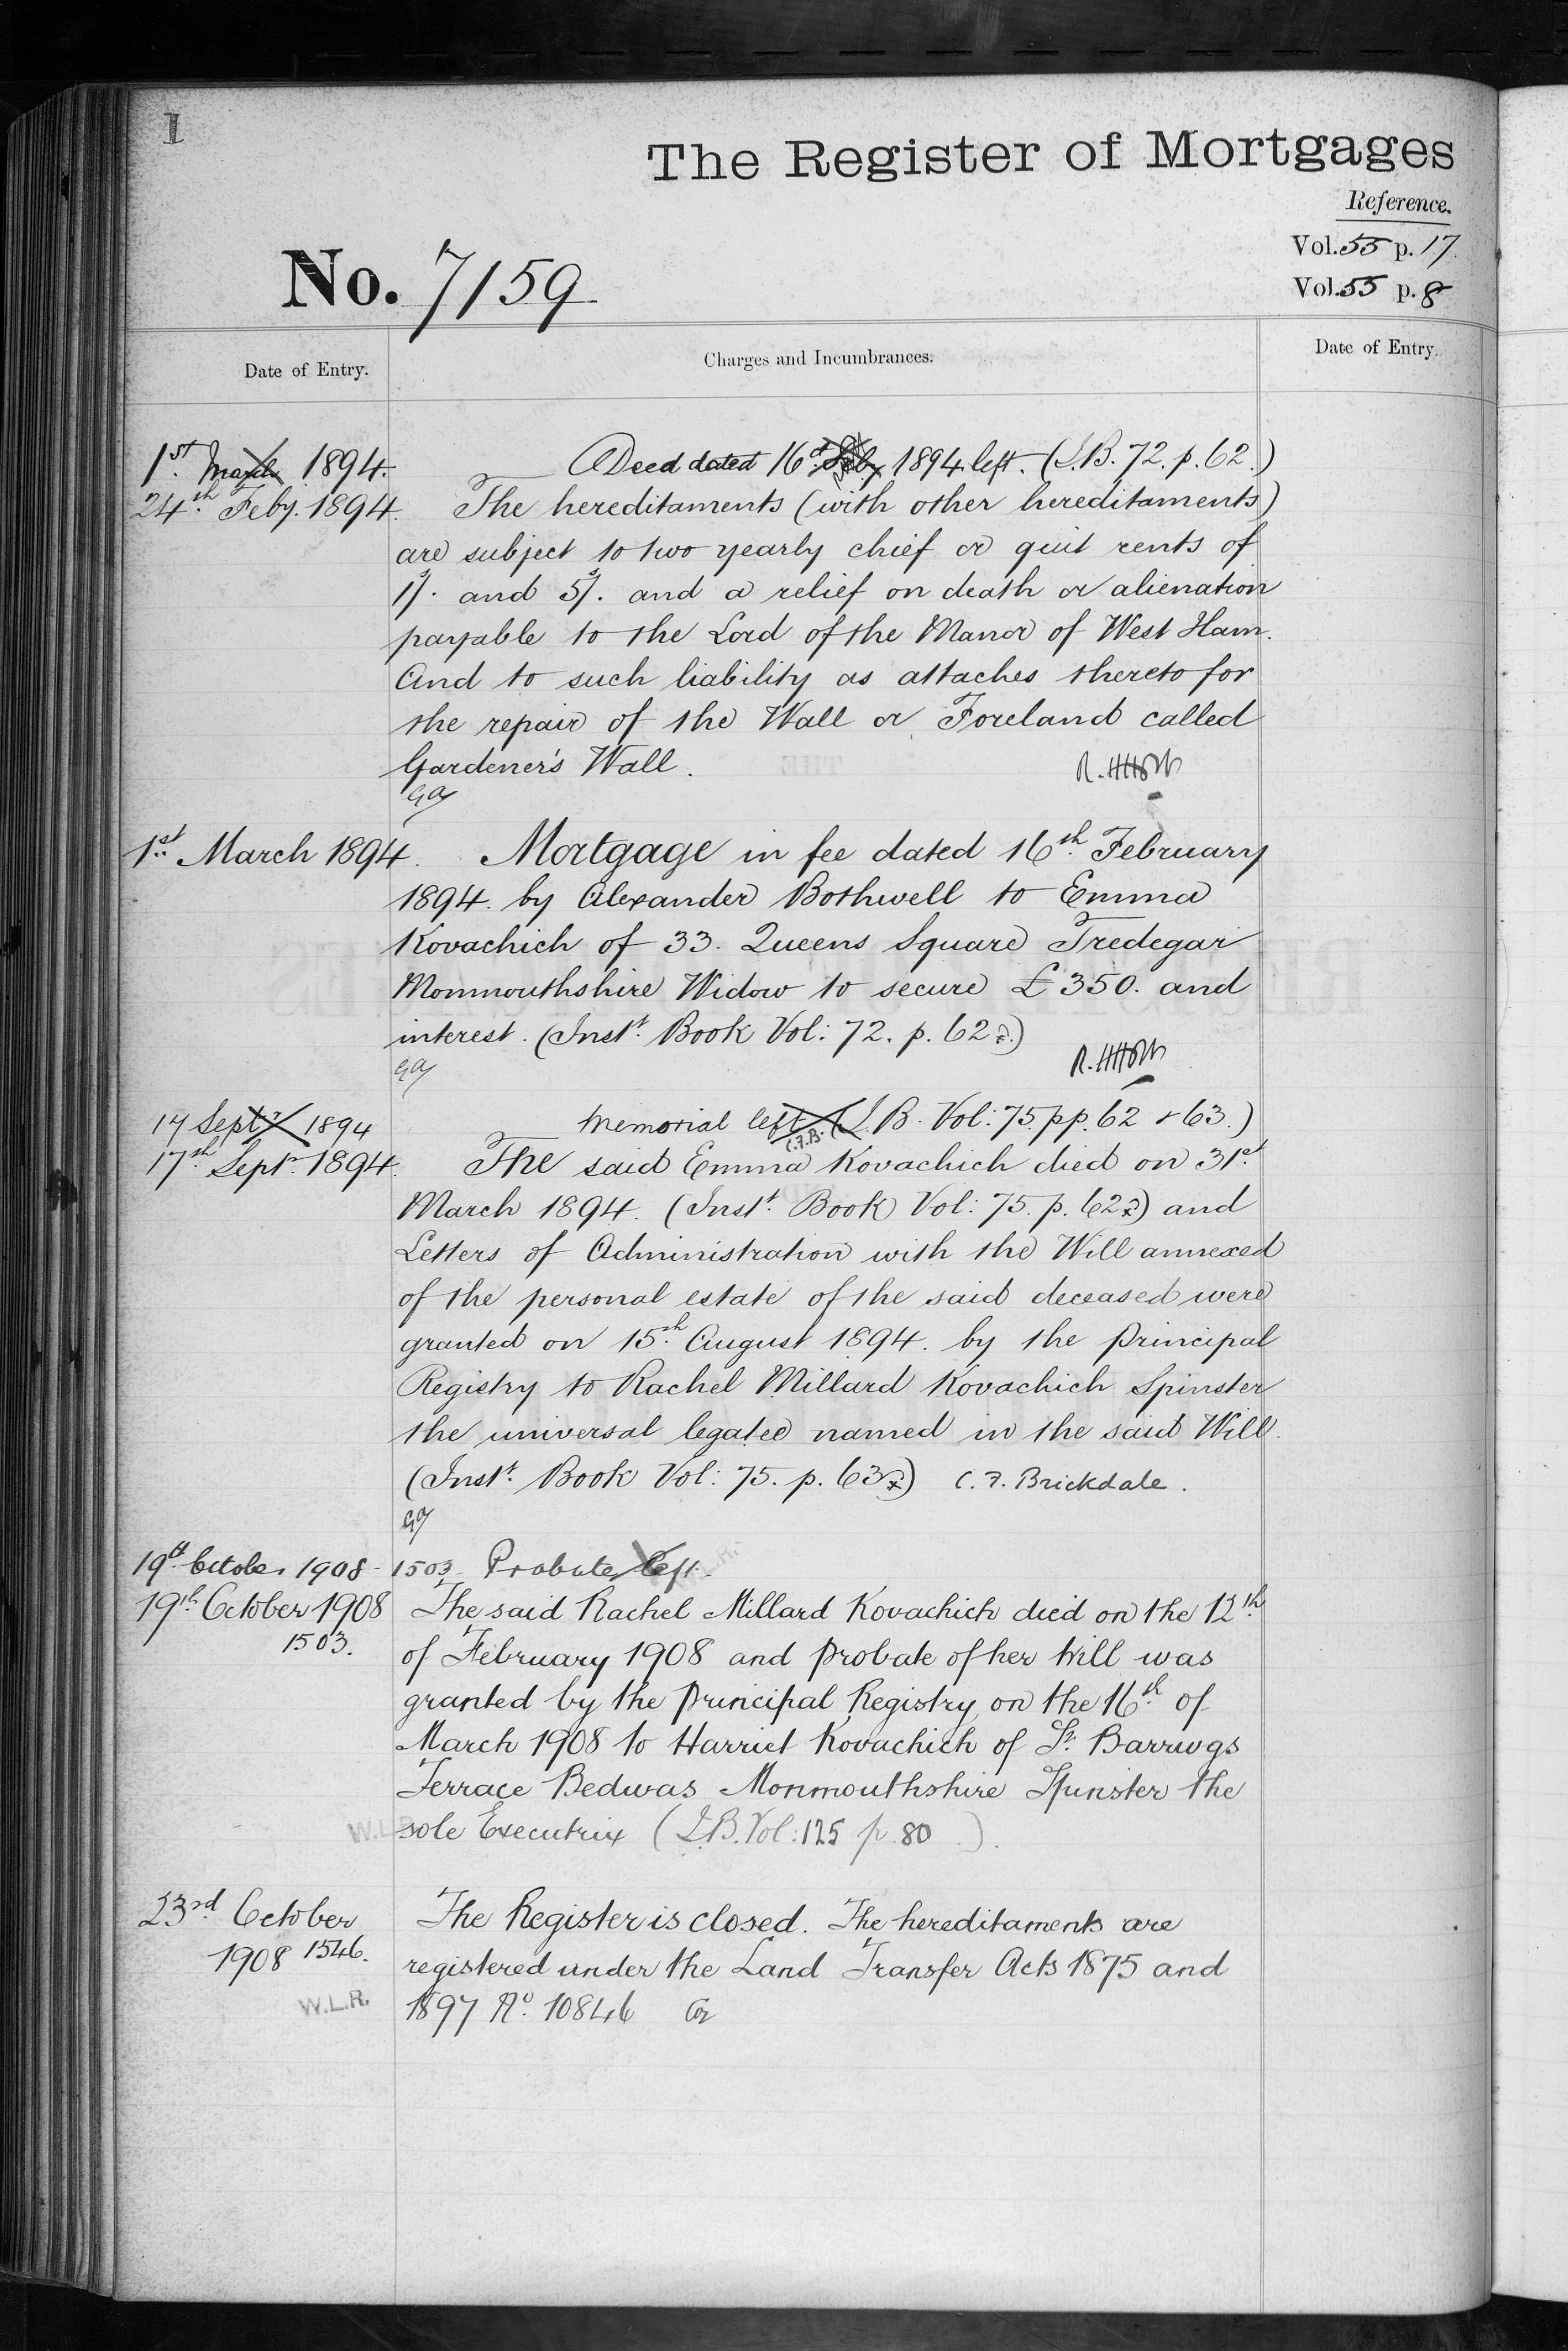 1
The Register of Mortgages
Reference.
Vol. 55 p. 17.
Vol. 55 p. 8
No. 7159
Date of Entry.
Charges and Incumbrances.
Date of Entry.
1st March 1894.
Deed dated 16th Feby 1894 left. (I.B. 72. p. 62.)
24th Feby. 1894.
The hereditaments (with other hereditaments)
are subject to two yearly chief or quit rents of
1s/. and 5s/. and a relief on death or alienation
payable to the Lord of the Manor of West Ham.
And to such liability as attaches thereto for
the repair of the Wall or Foreland called
Gardener's Wall.
1st March 1894.
Mortgage in fee dated 16th February
1894. by Alexander Bothwell to Emma
Kovachich of 33. Queens Square Tredegar
Monmouthshire Widow to secure £350. and
interest. (Instt. Book Vol: 72. p. 62.)
14 Septr 1894
Memorial left (I.B. Vol: 75. pp. 62 & 63.)
C.F.B.
17th Septr. 1894.
The said Emma Kovachich died on 31st
March 1894. (Instt. Book Vol: 75. p. 62) and
Letters of Administration with the Will annexed
of the personal estate of the said deceased were
granted on 15th August 1894. by the Principal
Registry to Rachel Millard Kovachich Spinster
the universal legatee named in the said Will.
(Instt. Book Vol: 75. p. 63) C. F. Brickdale.
19th October 1908 - 1503 - Probate left -
19th October 1908
1503.
The said Rachel Millard Kovachich died on the 12th
of February 1908 and Probate of her Will was
granted by the Principal Registry on the 16th of
March 1908 to Harriet Kovachich of St. Barrwgs
Terrace Bedwas Monmouthshire Spinster the
sole Executrix (I.B. Vol: 125 p. 80 ).
23rd October
1908 1546.
W.L.R.
The Register is closed. The hereditaments are
registered under the Land Transfer Acts 1875 and
1897 No. 10846